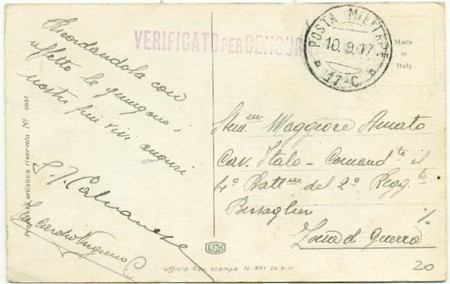 Ricordandola con
affetto le giungano i
nostri più vivi auguri
VERIFICATO PER CENSURA
POSTA MILITARE
10.9.17
Made
in
Italy
Maggiore Amato
Cav. Italo - Comand.te il
4° Batt.ne del 2° Regg.to
Bersaglieri
Zona di Guerra
Proprietà artistica riservata N°
Ufficio Rev. stampa N.
20